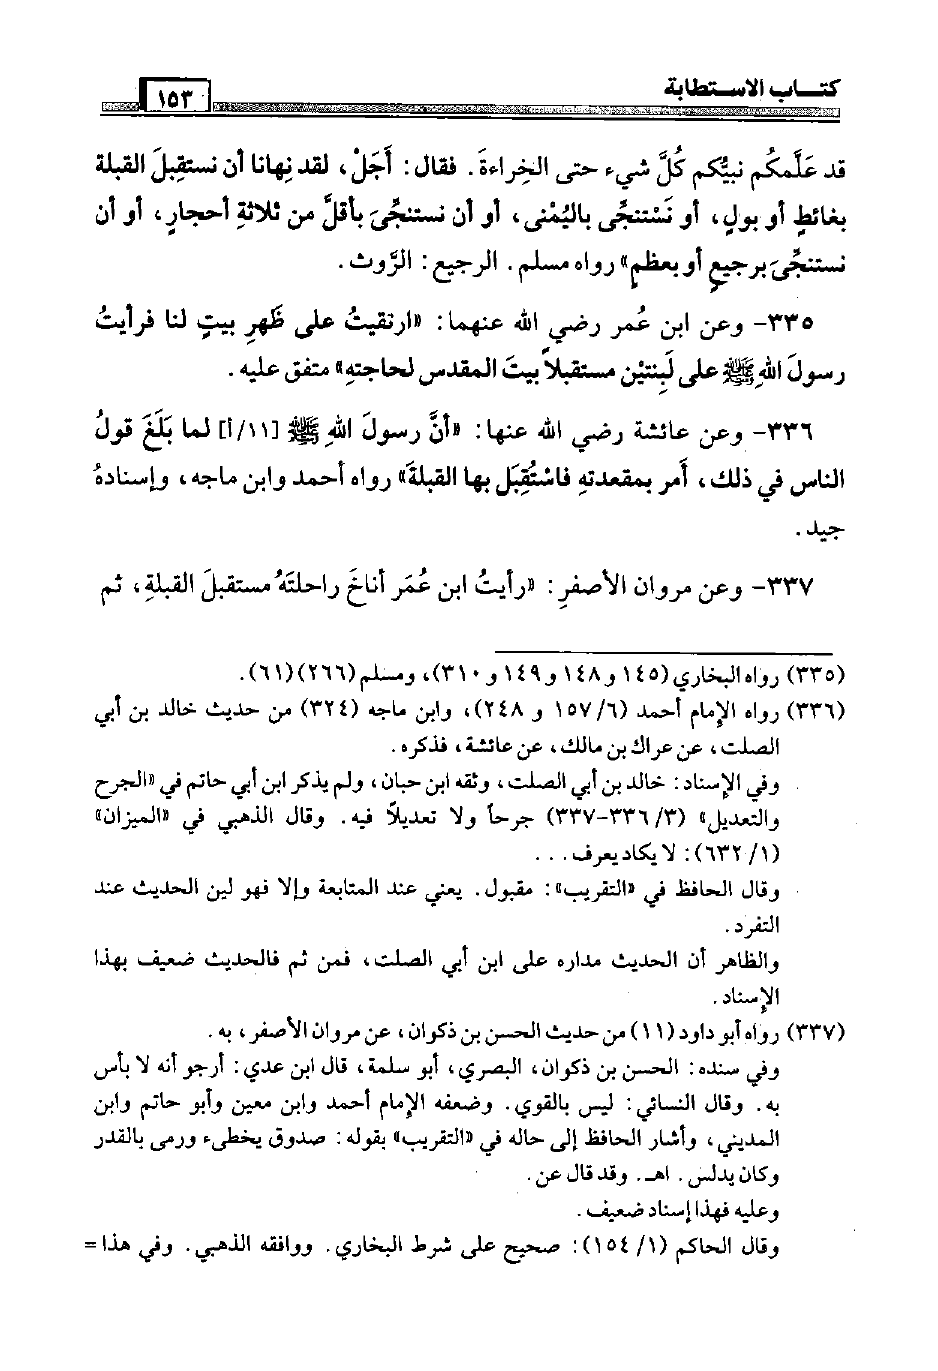 كتـــاب الاســتطابة
١٥٣
قد عَلَّمكُم نبيُّكم كُلَّ شيء حتى الخِراءةَ. فقال: أَجَلْ، لقد نِهانا أن نستقبِلَ القبلة
بغائطٍ أو بولٍ، أو نَسْتنجِّى باليُمْنى، أو أن نستنجِّىَ بأقلَّ من ثلاثةِ أحجارٍ، أو أن
نستنجِّىَ برجيعٍ أو بعظمٍ» رواه مسلم. الرجيع: الرَّوث.
٣٣٥- وعن ابن عُمر رضي الله عنهما: «ارتقيتُ على ظَهرِ بيتٍ لنا فرأيتُ
رسولَ اللهِ ﷺ على لَبِنتيْن مستقبلاً بيتَ المقدس لحاجتهِ» متفق عليه.
٣٣٦- وعن عائشة رضي الله عنها: «أنَّ رسولَ اللهِ ﷺ [١١/أ] لما بَلَغَ قولُ
الناس في ذلك، أَمر بمقعدتهِ فاسْتُقبَل بها القبلةَ» رواه أحمد وابن ماجه، وإسنادهُ
جيد.
٣٣٧- وعن مروان الأصفرِ: «رأيتُ ابن عُمَر أناخَ راحلتَهُ مستقبلَ القبلةِ، ثم
(٣٣٥) رواه البخاري (١٤٥ و ١٤٨ و ١٤٩ و ٣١٠)، ومسلم (٢٦٦)(٦١).
(٣٣٦) رواه الإمام أحمد (٦/ ١٥٧ و ٢٤٨)، وابن ماجه (٣٢٤) من حديث خالد بن أبي
الصلت، عن عراك بن مالك، عن عائشة، فذكره.
وفي الإسناد: خالد بن أبي الصلت، وثقه ابن حبان، ولم يذكر ابن أبي حاتم في «الجرح
والتعديل» (٣/ ٣٣٦-٣٣٧) جرحاً ولا تعديلاً فيه. وقال الذهبي في «الميزان»
(١/ ٦٣٢): لا يكاد يعرف...
وقال الحافظ في «التقريب»: مقبول. يعني عند المتابعة وإلا فهو لين الحديث عند
التفرد.
والظاهر أن الحديث مداره على ابن أبي الصلت، فمن ثم فالحديث ضعيف بهذا
الإسناد.
(٣٣٧) رواه أبو داود (١١) من حديث الحسن بن ذكوان، عن مروان الأصفر، به.
وفي سنده: الحسن بن ذكوان، البصري، أبو سلمة، قال ابن عدي: أرجو أنه لا بأس
به. وقال النسائي: ليس بالقوي. وضعفه الإمام أحمد وابن معين وأبو حاتم وابن
المديني، وأشار الحافظ إلى حاله في «التقريب» بقوله: صدوق يخطىء ورمى بالقدر
وكان يدلس. اهـ. وقد قال عن.
وعليه فهذا إسناد ضعيف.
وقال الحاكم (١/ ١٥٤): صحيح على شرط البخاري. ووافقه الذهبي. وفي هذا =